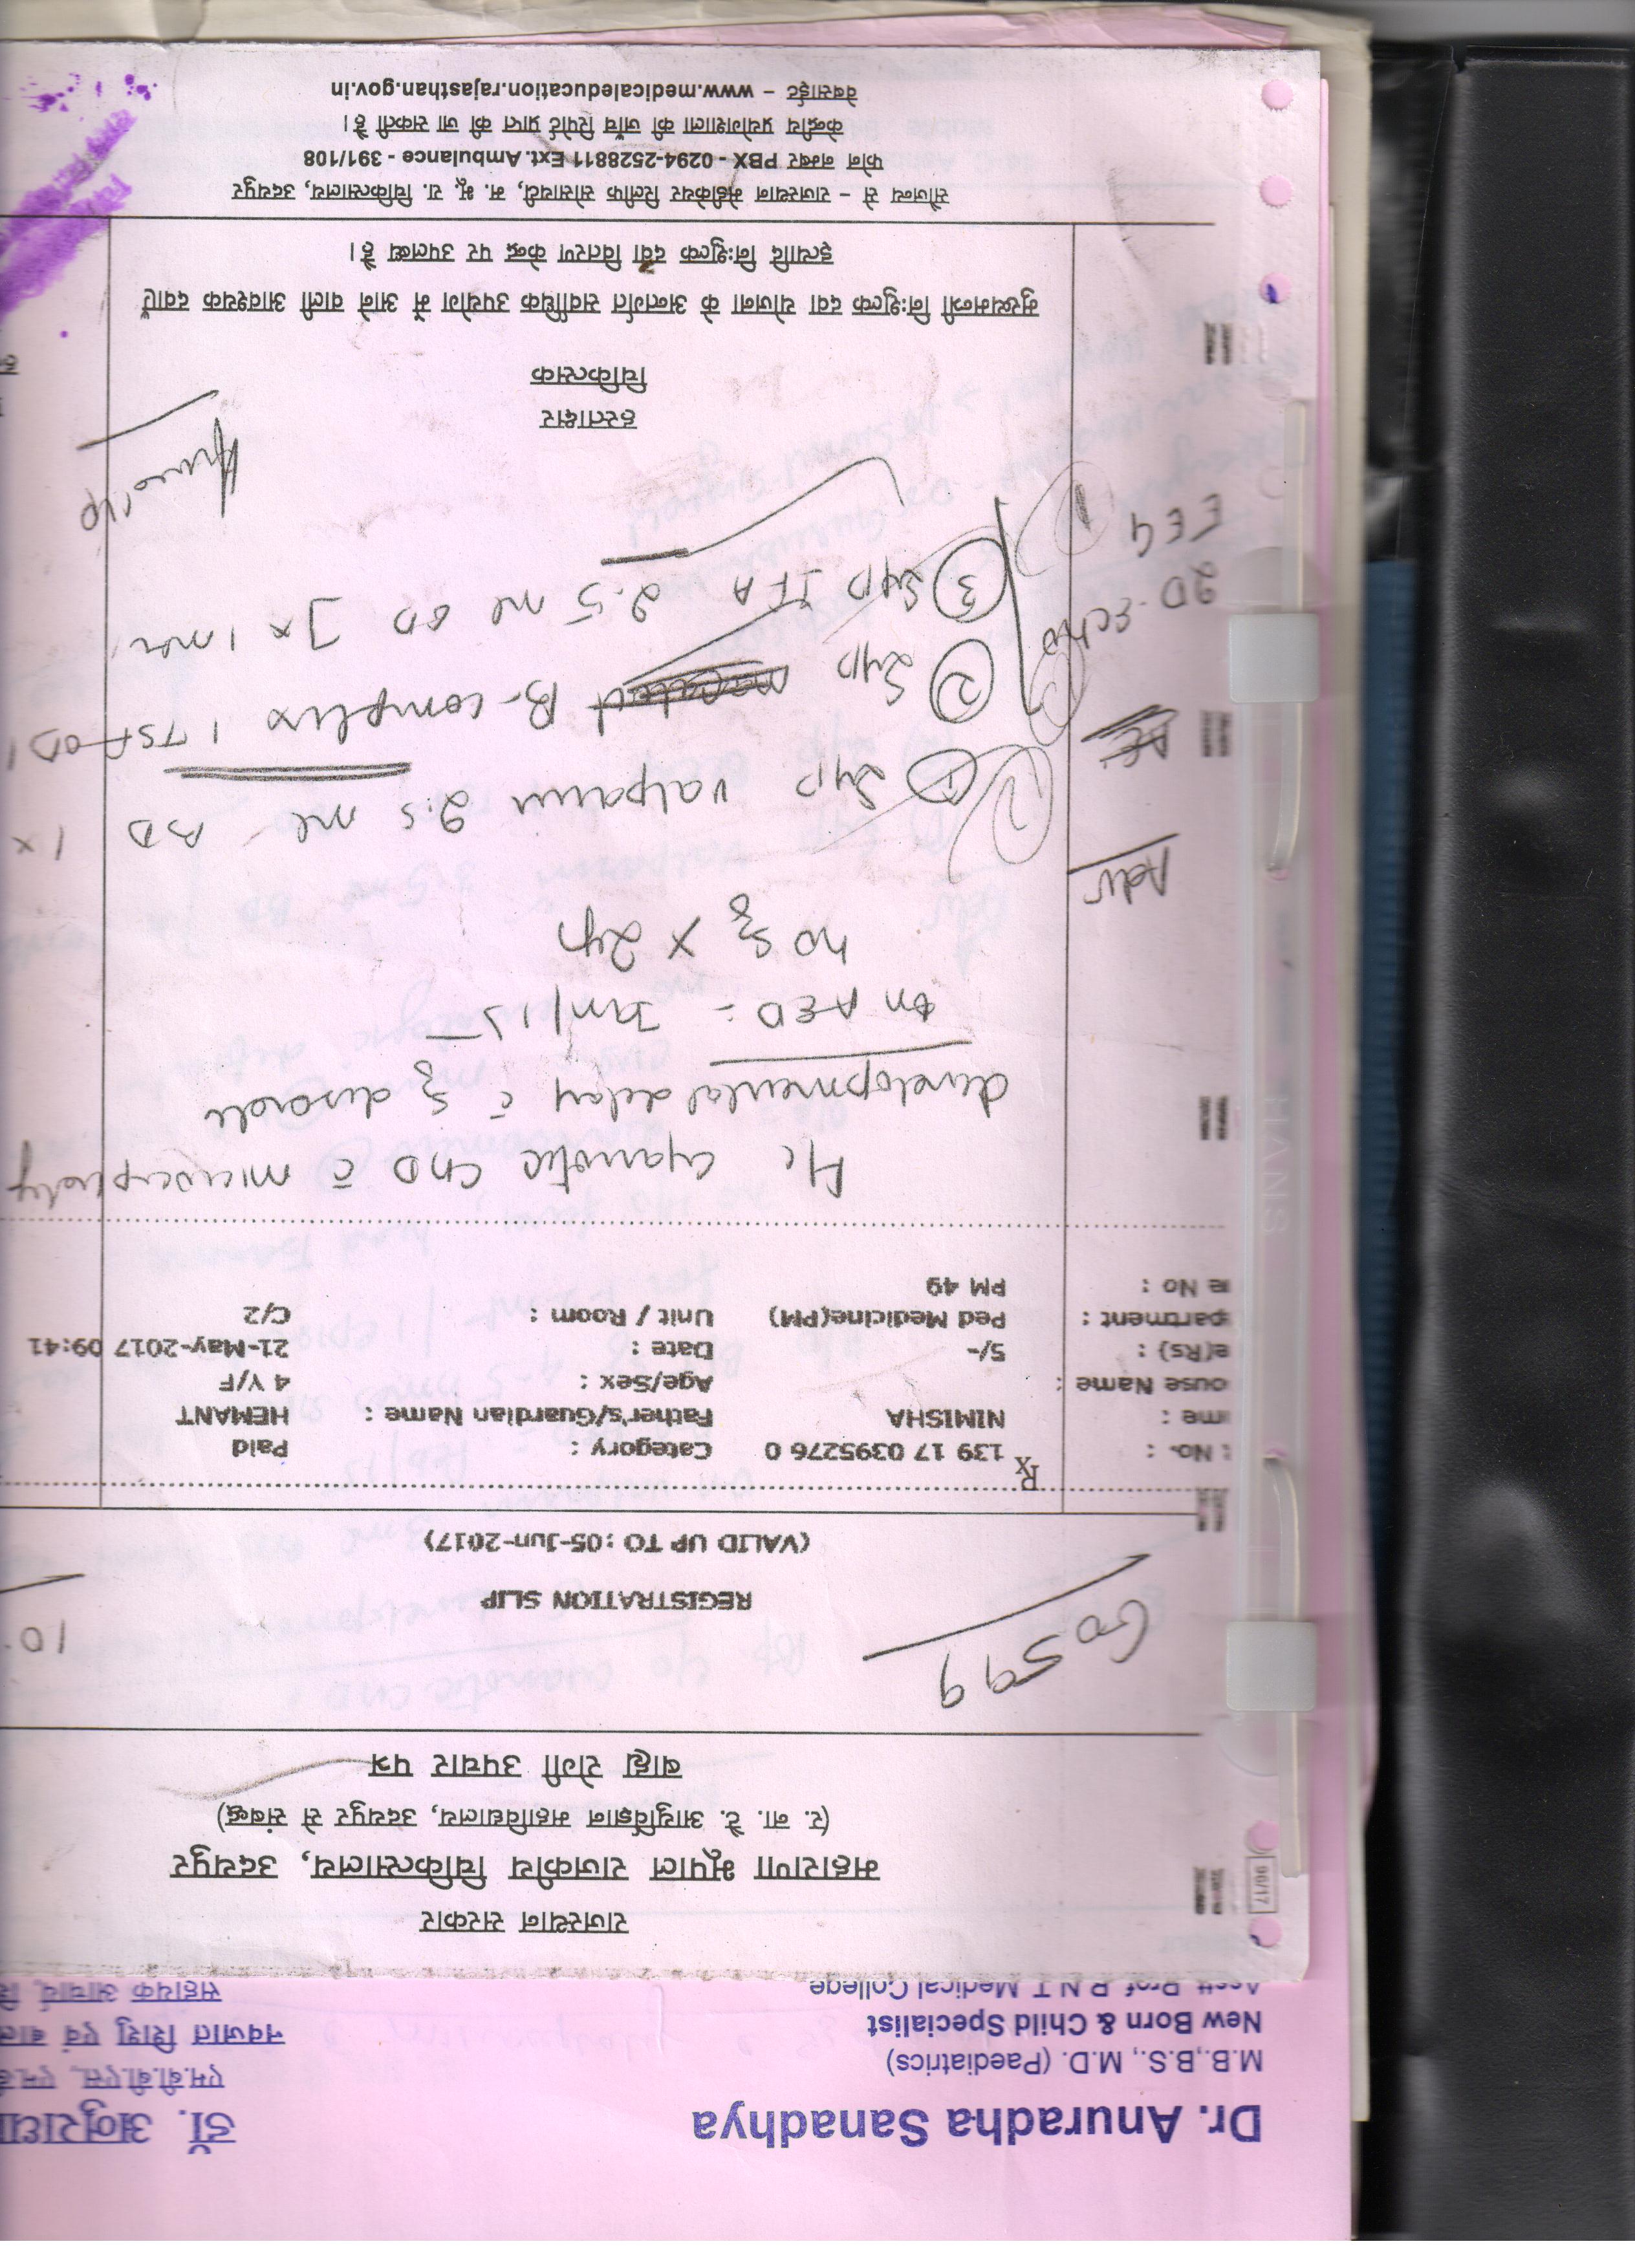 राजस्थान सरकार
महाराणा भूपाल राजकीय चिकित्सालय, उदयपुर
(र. ना. टै. आयुर्विज्ञान महाविद्यालय, उदयपुर से संबद्ध)
बाह्य रोगी उपचार पत्र
60599
10.
REGISTRATION SLIP
(VALID UP TO : 05-Jun-2017)
Rx
No. : 139 17 0395276 0 Category : Paid
me : NIMISHA Father's/Guardian Name : HEMANT
ouse Name : Age/Sex : 4 Y/F
e(Rs) : 5/- Date : 21-May-2017 09:41
partment : Ped Medicine(PM) Unit / Room : C/2
e No : PM 49
cyanotic CHD c̄ microcephaly
developmental delay c̄ Sz disorder
on AED - Jan/15
no Sz x 2yr
Adv
① Syp valparin 2.5 ml BD 1 x
② Syp B-complex 1 TSF OD
③ Syp IFA 2.5 ml OD ] x 1 mon
2D-Echo
EEG
हस्ताक्षर
चिकित्सक
मुख्यमन्त्री निःशुल्क दवा योजना के अन्तर्गत सर्वाधिक उपयोग में आने वाली आवश्यक दवाएँ
इत्यादि निःशुल्क दवा वितरण केन्द्र पर उपलब्ध हैं।
सौजन्य से – राजस्थान मेडीकेयर रिलीफ सोसायटी, म. भू. रा. चिकित्सालय, उदयपुर
फोन नम्बर PBX - 0294-2528811 Ext. Ambulance - 391/108
केन्द्रीय प्रयोगशाला की जाँच रिपोर्ट प्राप्त की जा सकती है।
वेबसाईट – www.medicaleducation.rajasthan.gov.in
Dr. Anuradha Sanadhya
M.B.,B.S., M.D. (Paediatrics)
New Born & Child Specialist
Asstt. Prof. R.N.T. Medical College
डॉ. अनुराधा
एम.बी.बी.एस., एम.डी.
नवजात शिशु एवं बाल
सहायक आचार्य,
96/17
HANS